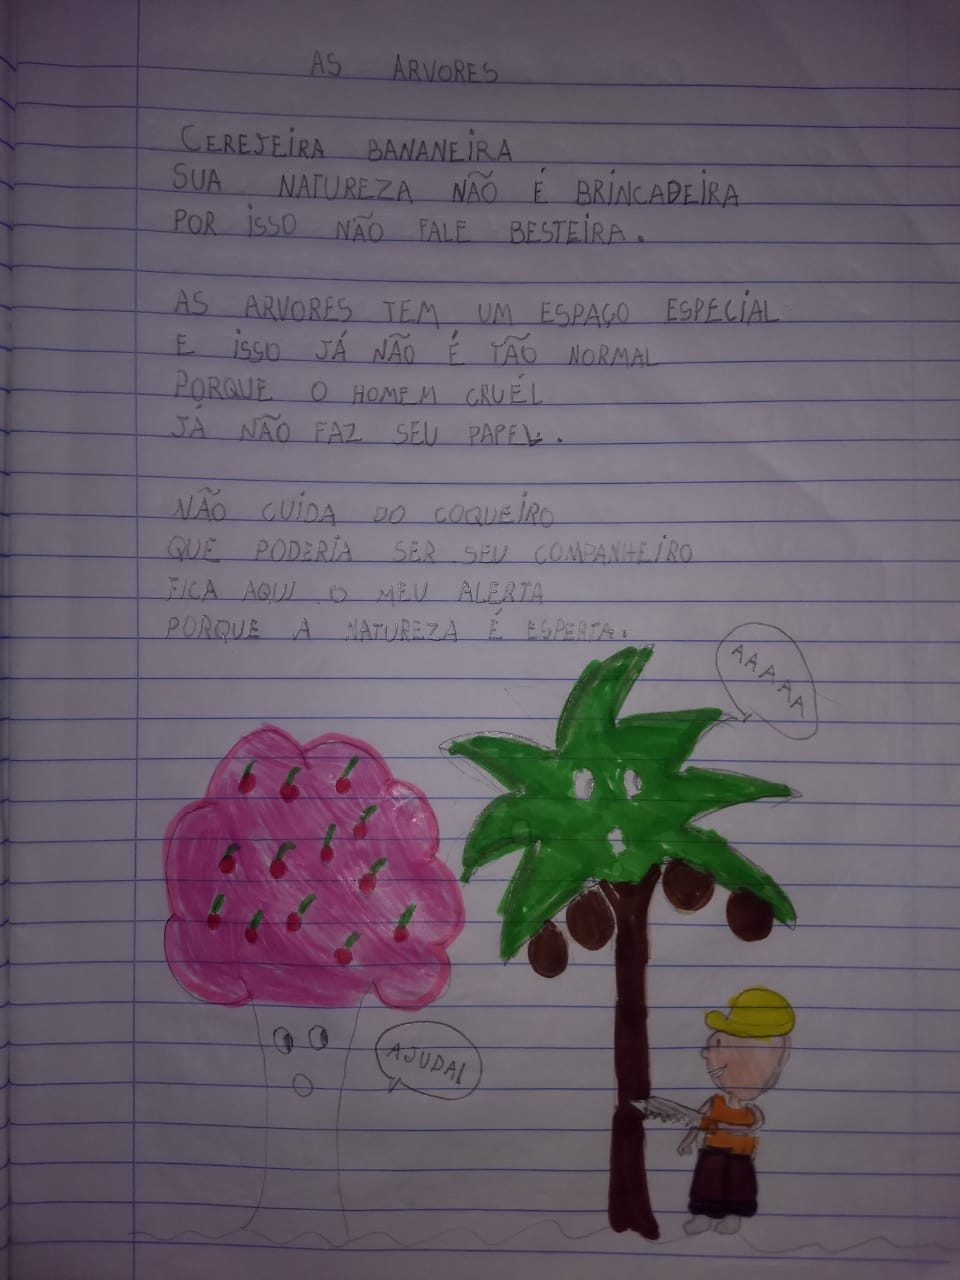 AS ARVORES
CEREJEIRA BANANEIRA
SUA NATUREZA NÃO É BRINCADEIRA
POR ISSO NÃO FALE BESTEIRA.
AS ARVORES TEM UM ESPAÇO ESPECIAL
E ISSO JÁ NÃO É TÃO NORMAL
PORQUE O HOMEM CRUÉL
JÁ NÃO FAZ SEU PAPEL.
NÃO CUIDA DO COQUEIRO
QUE PODERIA SER SEU COMPANHEIRO
FICA AQUI O MEU ALERTA
PORQUE A NATUREZA É ESPERTA.
AAAAA
AJUDA!